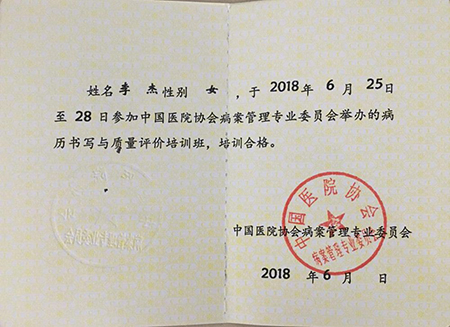 姓名李 杰性别 女 ,于 2018年 6 月 25日
至 28 日参加中国医院协会病案管理专业委员会举办的病
历书写与质量评价培训班,培训合格。
中国医院协会
病案管理专业委员会
中国医院协会病案管理专业委员会
2018 年 6 月 日